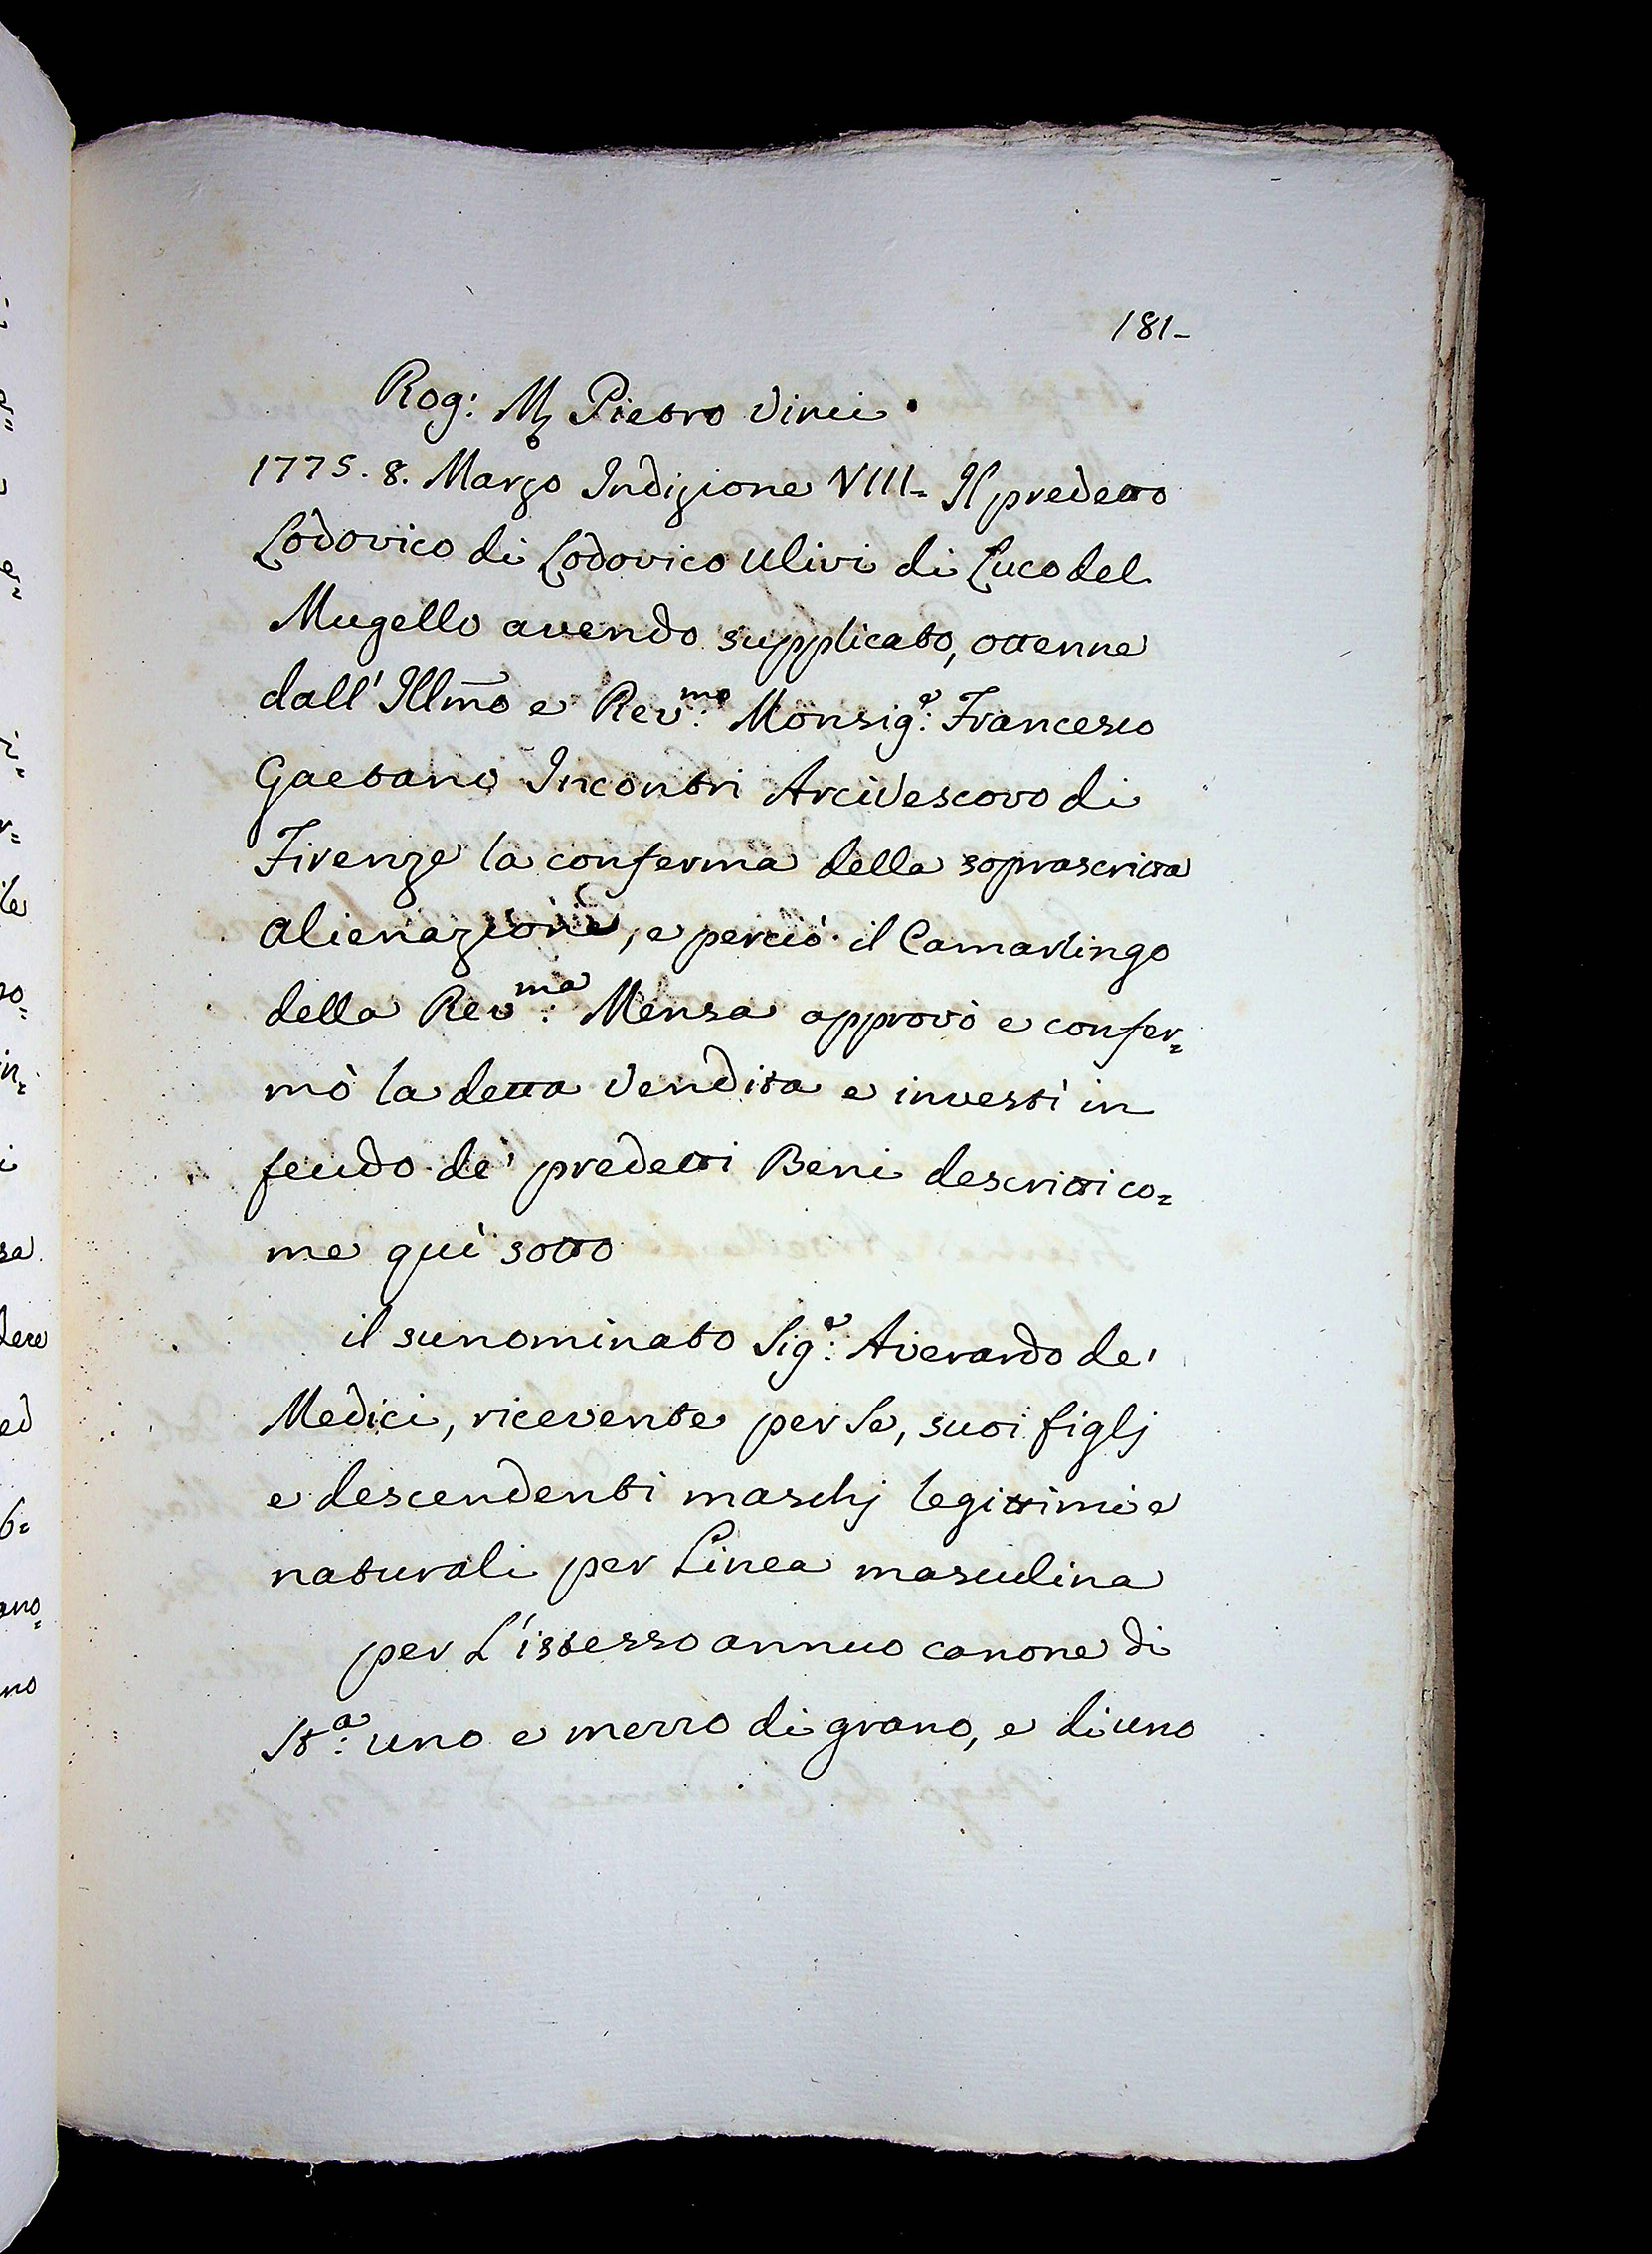 181-
Rog: M Pietro Vinci.
1775. 8. Marzo Indizione VIII= Il predetto
Lodovico di Lodovico Ulivi di Luco del
Mugello avendo supplicato, ottenne
dall' Illmo e Revmo: Monsige: Francesco
Gaetano Incontri Arcivescovo di
Firenze la conferma della soprascritta
alienazione, e perciò il Camarlingo
della Revma: Mensa approvò e confer=
mò la detta Vendita e investì in
feudo de' predetti Beni descritti co=
me quì sotto
il sunominato Sige: Averardo de'
Medici, ricevente per Se, suoi figlj
e descendenti maschj legittimi e
naturali per Linea masculina
per L'istesso annuo canone di
Sta: uno e mezzo di grano, e di uno